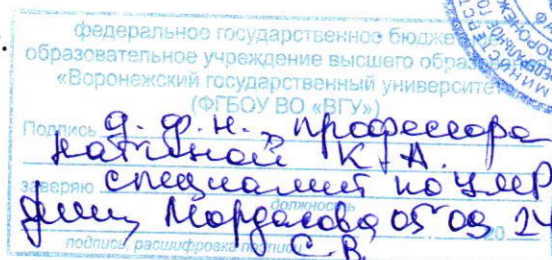 федеральное государственное бюдже
образовательное учреждение высшего образования
«Воронежский государственный университет
(ФГБОУ ВО «ВГУ»)
Подпись д.ф.н., профессора
К.А.
заверяю специалист по УМР
должность
Мордасова 05 09 24
20
С.В.
подпись, расшифровка подписи